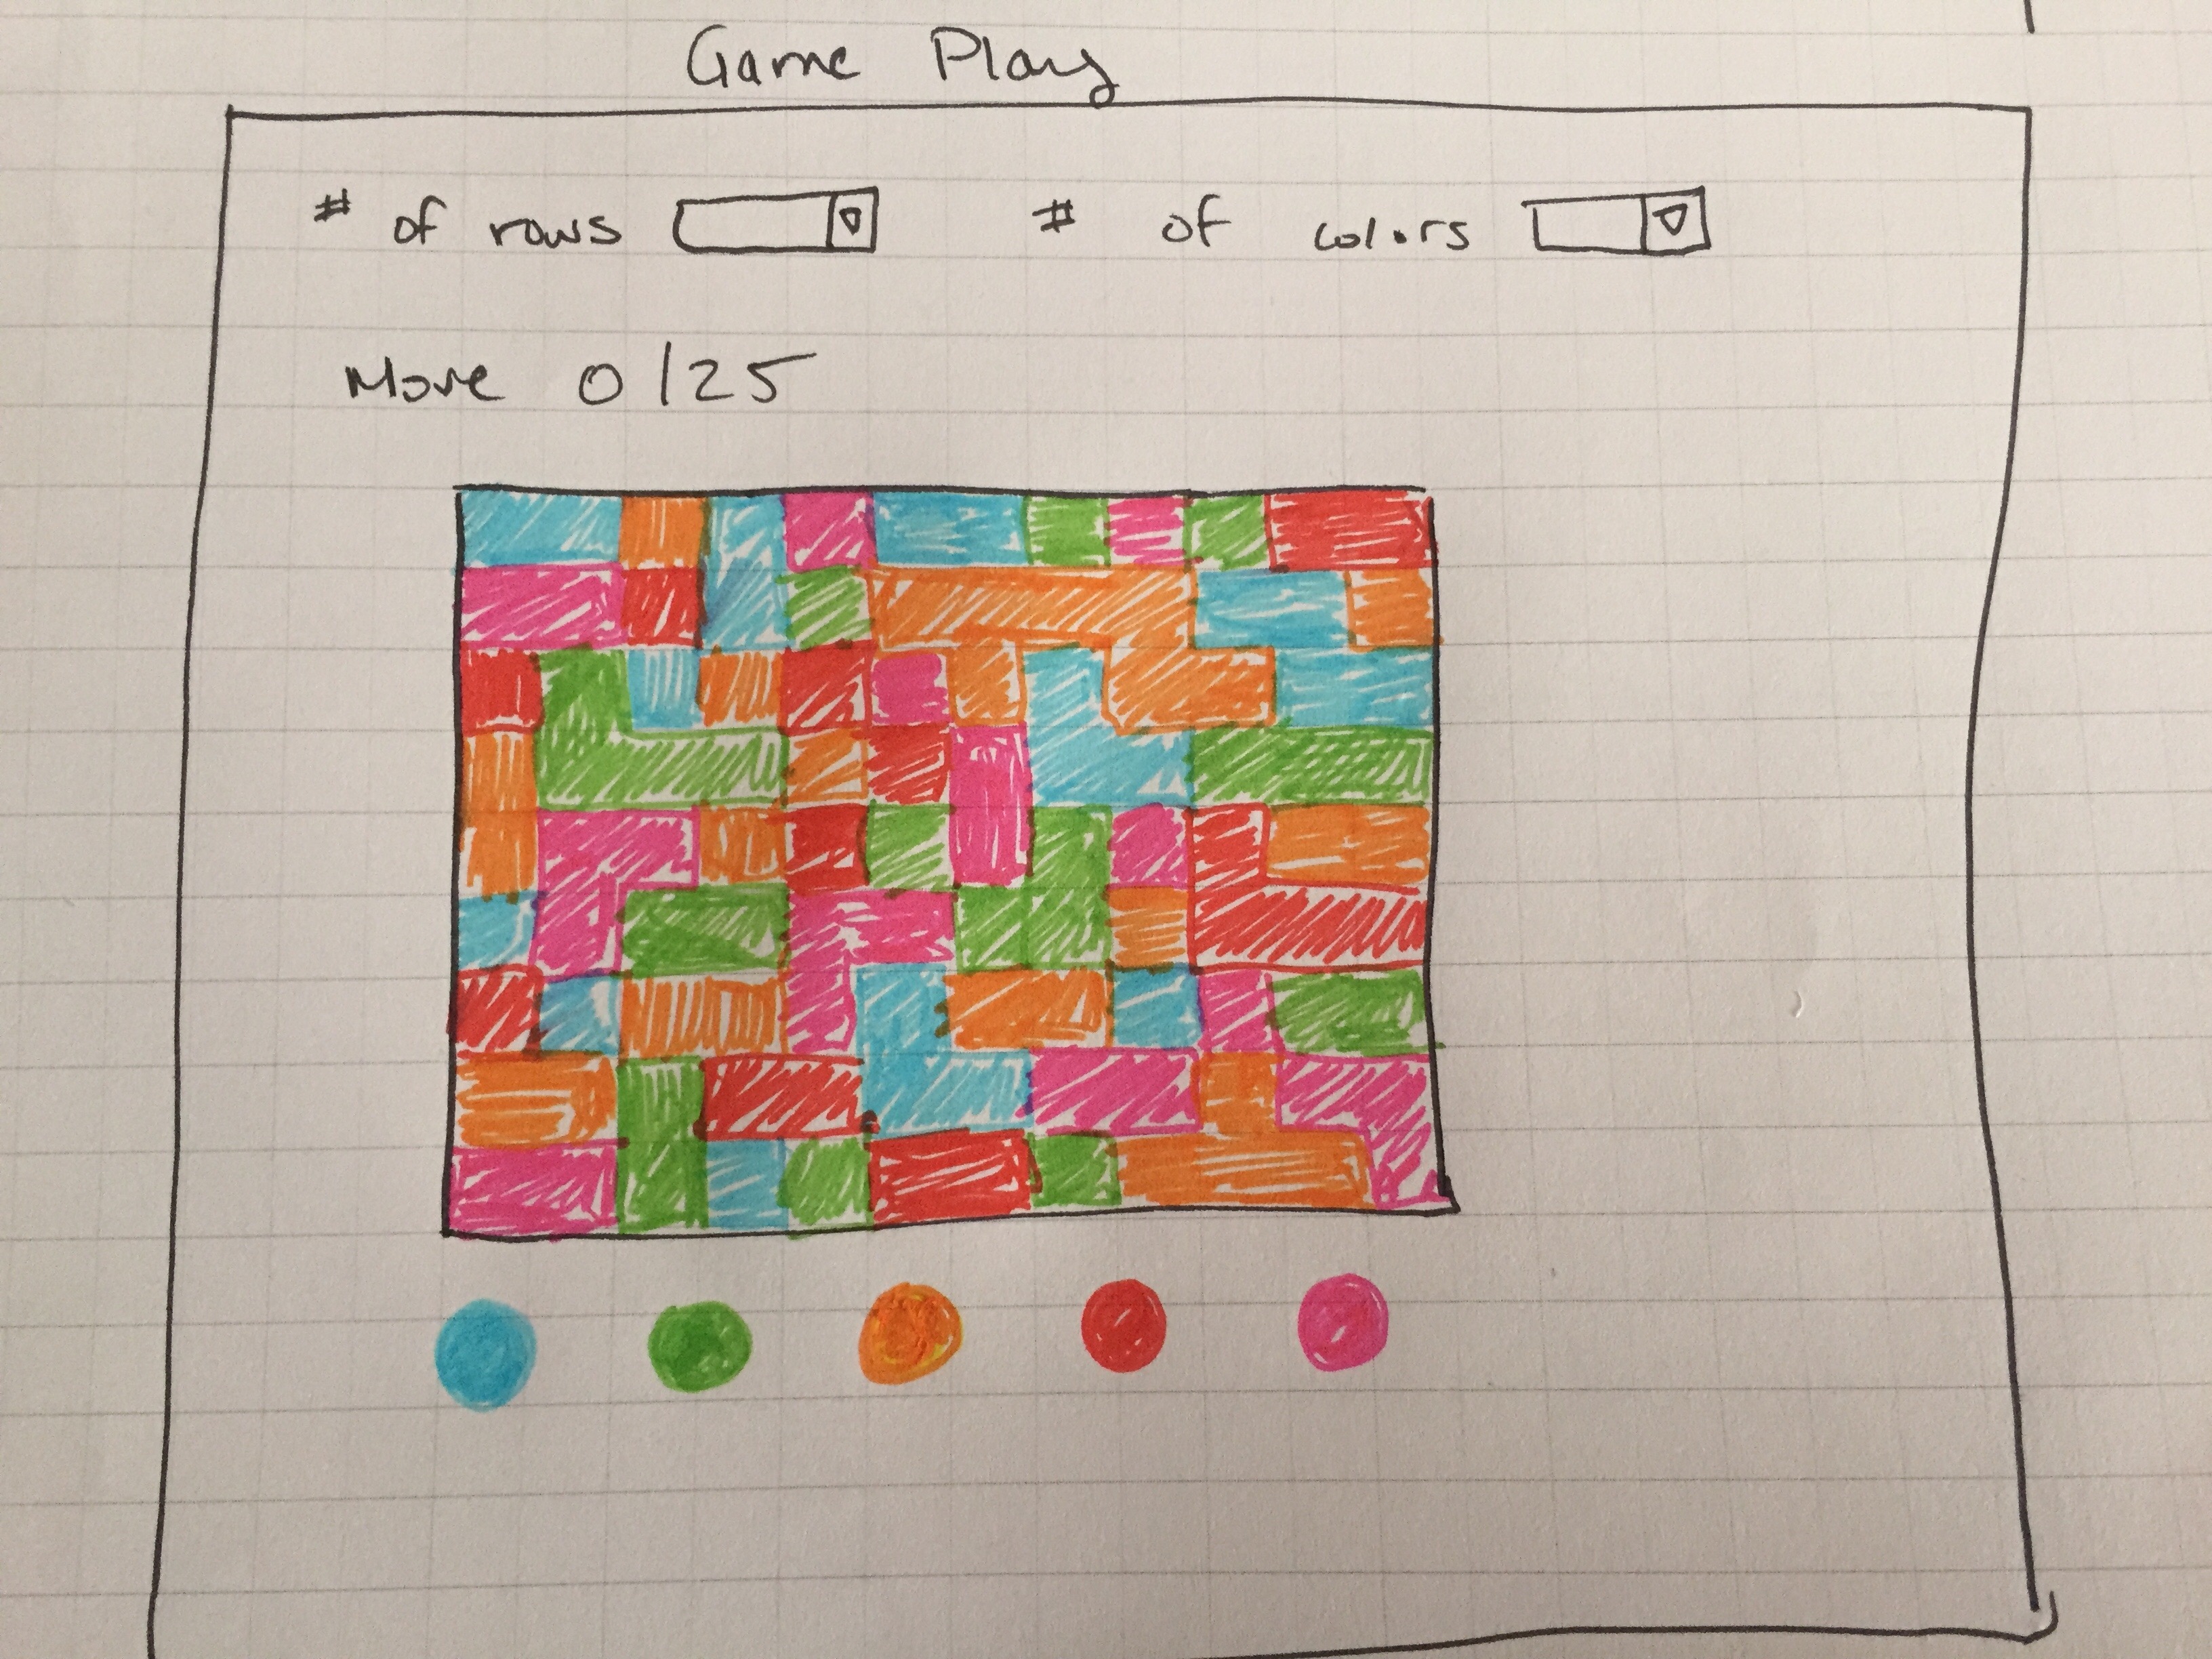 Game Play
# of rows # of colors
Move 0/25